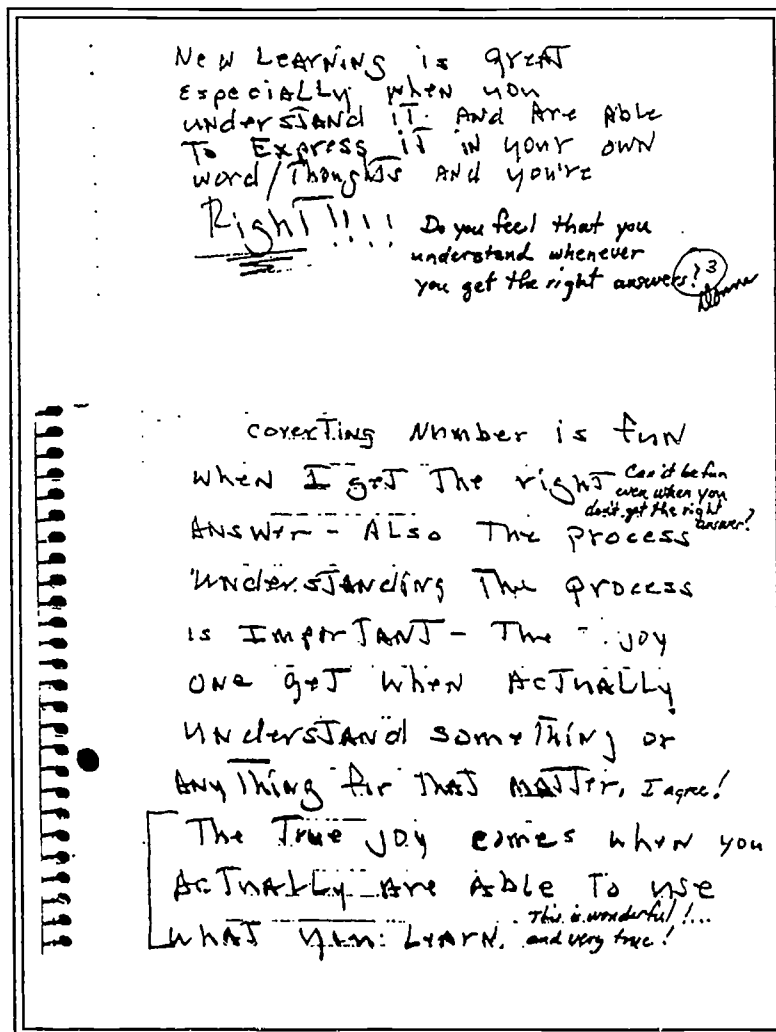 New Learning is great
Especially when you
understand it. And Are Able
To Express it in your own
word/Thoughts And you're
Right!!!!
Do you feel that you
understand whenever
you get the right answers?
3
coverting Number is fun
when I get The right
Can it be fun
even when you
don't get the right
answer?
Answer - Also The process
Understanding The process
is Important - The joy
one get when Actually
Understand something or
Any Thing for That matter.
I agree!
The True joy comes when you
Actually Are Able To use
what you Learn.
This is wonderful!...
and very true!